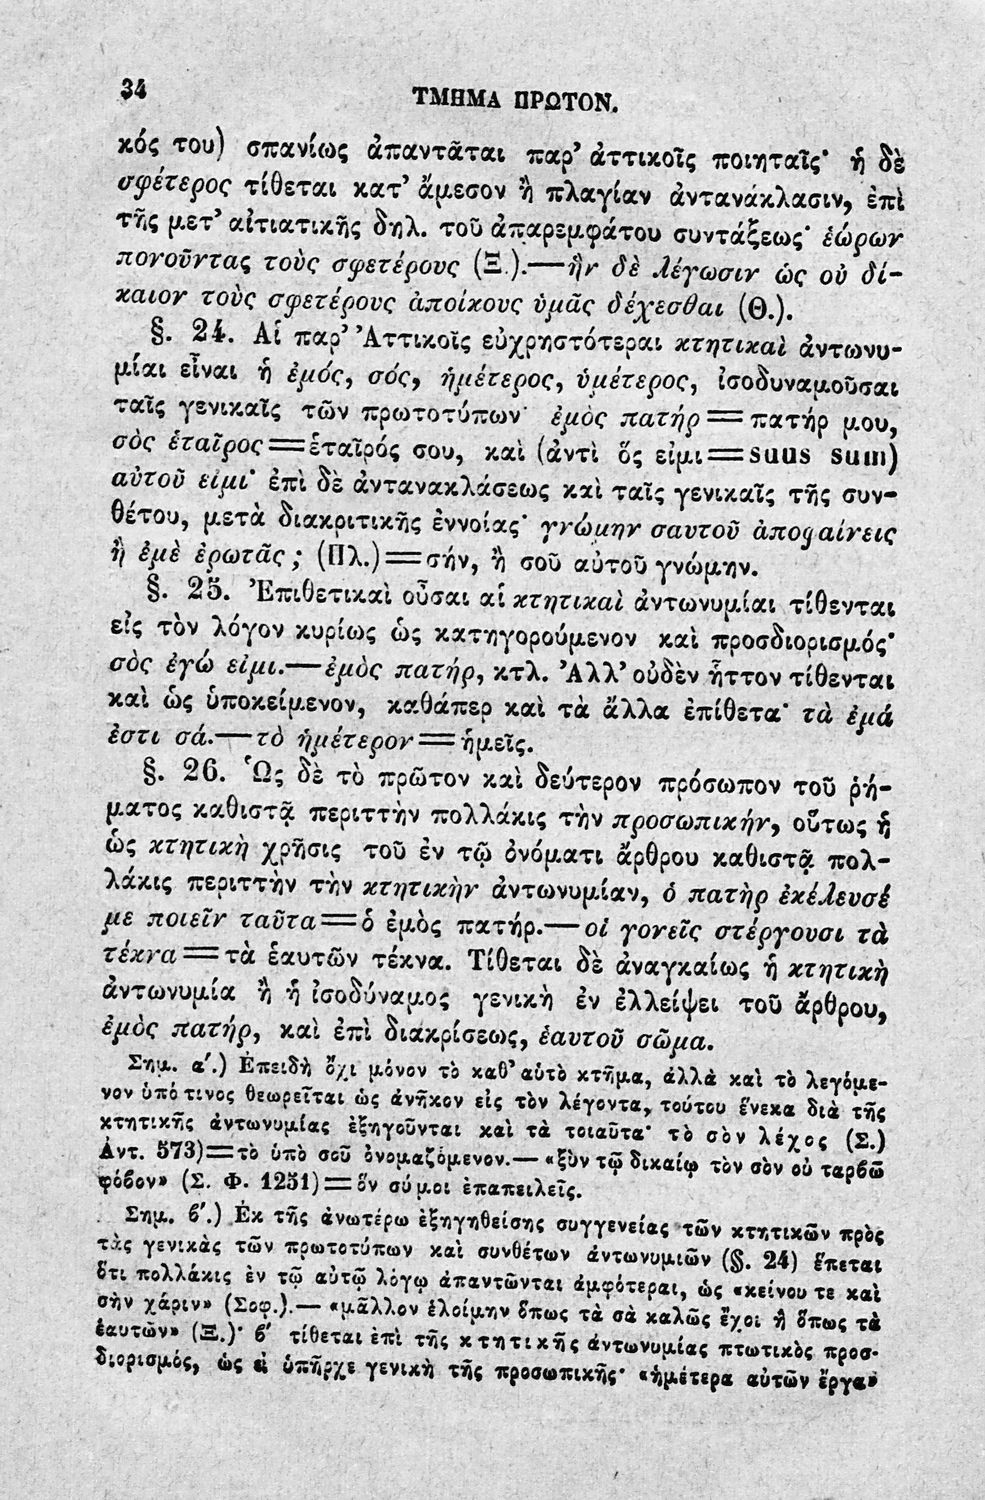 34
ΤΜΗΜΑ ΠΡΩΤΟΝ.
κός του) σπανίως ἀπαντᾶται παρ’ ἀττικοῖς ποιηταῖς· ἡ δὲ
σφέτερος τίθεται κατ’ ἄμεσον ἢ πλαγίαν ἀντανάκλασιν, ἐπὶ
τῆς μετ’ αἰτιατικῆς δηλ. τοῦ ἀπαρεμφάτου συντάξεως· ἑώρων
πονοῦντας τοὺς σφετέρους (Ξ.).—ἢν δὲ λέγωσιν ὡς οὐ δί-
καιον τοὺς σφετέρους ἀποίκους ὑμᾶς δέχεσθαι (Θ.).
§. 24. Αἱ παρ’ Ἀττικοῖς εὐχρηστότεραι κτητικαὶ ἀντωνυ-
μίαι εἶναι ἡ ἐμός, σός, ἡμέτερος, ὑμέτερος, ἰσοδυναμοῦσαι
ταῖς γενικαῖς τῶν πρωτοτύπων· ἐμὸς πατήρ = πατήρ μου,
σὸς ἑταῖρος = ἑταῖρός σου, καὶ (ἀντὶ ὅς εἰμι = suus sum)
αὑτοῦ εἰμι· ἐπὶ δὲ ἀντανακλάσεως καὶ ταῖς γενικαῖς τῆς συν-
θέτου, μετὰ διακριτικῆς ἐννοίας· γνώμην σαυτοῦ ἀποφαίνεις
ἢ ἐμὲ ἐρωτᾷς; (Πλ.) = σήν, ἢ σοῦ αὐτοῦ γνώμην.
§. 25. Ἐπιθετικαὶ οὖσαι αἱ κτητικαὶ ἀντωνυμίαι τίθενται
εἰς τὸν λόγον κυρίως ὡς κατηγορούμενον καὶ προσδιορισμός·
σὸς ἐγώ εἰμι.—ἐμὸς πατήρ, κτλ. Ἀλλ’ οὐδὲν ἧττον τίθενται
καὶ ὡς ὑποκείμενον, καθάπερ καὶ τὰ ἄλλα ἐπίθετα· τὰ ἐμά
ἐστι σά.—τὸ ἡμέτερον = ἡμεῖς.
§. 26. Ὡς δὲ τὸ πρῶτον καὶ δεύτερον πρόσωπον τοῦ ῥή-
ματος καθιστᾷ περιττὴν πολλάκις τὴν προσωπικήν, οὕτως ἡ
ὡς κτητικὴ χρῆσις τοῦ ἐν τῷ ὀνόματι ἄρθρου καθιστᾷ πολ-
λάκις περιττὴν τὴν κτητικὴν ἀντωνυμίαν, ὁ πατὴρ ἐκέλευσέ
με ποιεῖν ταῦτα = ὁ ἐμὸς πατήρ.—οἱ γονεῖς στέργουσι τὰ
τέκνα = τὰ ἑαυτῶν τέκνα. Τίθεται δὲ ἀναγκαίως ἡ κτητικὴ
ἀντωνυμία ἢ ἡ ἰσοδύναμος γενικὴ ἐν ἐλλείψει τοῦ ἄρθρου,
ἐμὸς πατήρ, καὶ ἐπὶ διακρίσεως, ἑαυτοῦ σῶμα.
Σημ. α΄.) Ἐπειδὴ ὄχι μόνον τὸ καθ’ αὑτὸ κτῆμα, ἀλλὰ καὶ τὸ λεγόμε-
νον ὑπό τινος θεωρεῖται ὡς ἀνῆκον εἰς τὸν λέγοντα, τούτου ἕνεκα διὰ τῆς
κτητικῆς ἀντωνυμίας ἐξηγοῦνται καὶ τὰ τοιαῦτα· τὸ σὸν λέχος (Σ.)
Ἀντ. 573) = τὸ ὑπὸ σοῦ ὀνομαζόμενον.— «ξὺν τῷ δικαίῳ τὸν σὸν οὐ ταρβῶ
φόβον» (Σ. Φ. 1251) = ὃν σύ μοι ἐπαπειλεῖς.
Σημ. β΄.) Ἐκ τῆς ἀνωτέρω ἐξηγηθείσης συγγενείας τῶν κτητικῶν πρὸς
τὰς γενικὰς τῶν πρωτοτύπων καὶ συνθέτων ἀντωνυμιῶν (§. 24) ἕπεται
ὅτι πολλάκις ἐν τῷ αὐτῷ λόγῳ ἀπαντῶνται ἀμφότεραι, ὡς «κείνου τε καὶ
σὴν χάριν» (Σοφ.).— «μᾶλλον ἑλοίμην ὅπως τὰ σὰ καλῶς ἔχοι ἢ ὅπως τὰ
ἑαυτῶν» (Ξ.)· β΄ τίθεται ἐπὶ τῆς κτητικῆς ἀντωνυμίας πτωτικὸς προσ-
διορισμός, ὡς εἰ ὑπῆρχε γενικὴ τῆς προσωπικῆς· «ἡμέτερα αὐτῶν ἔργα»